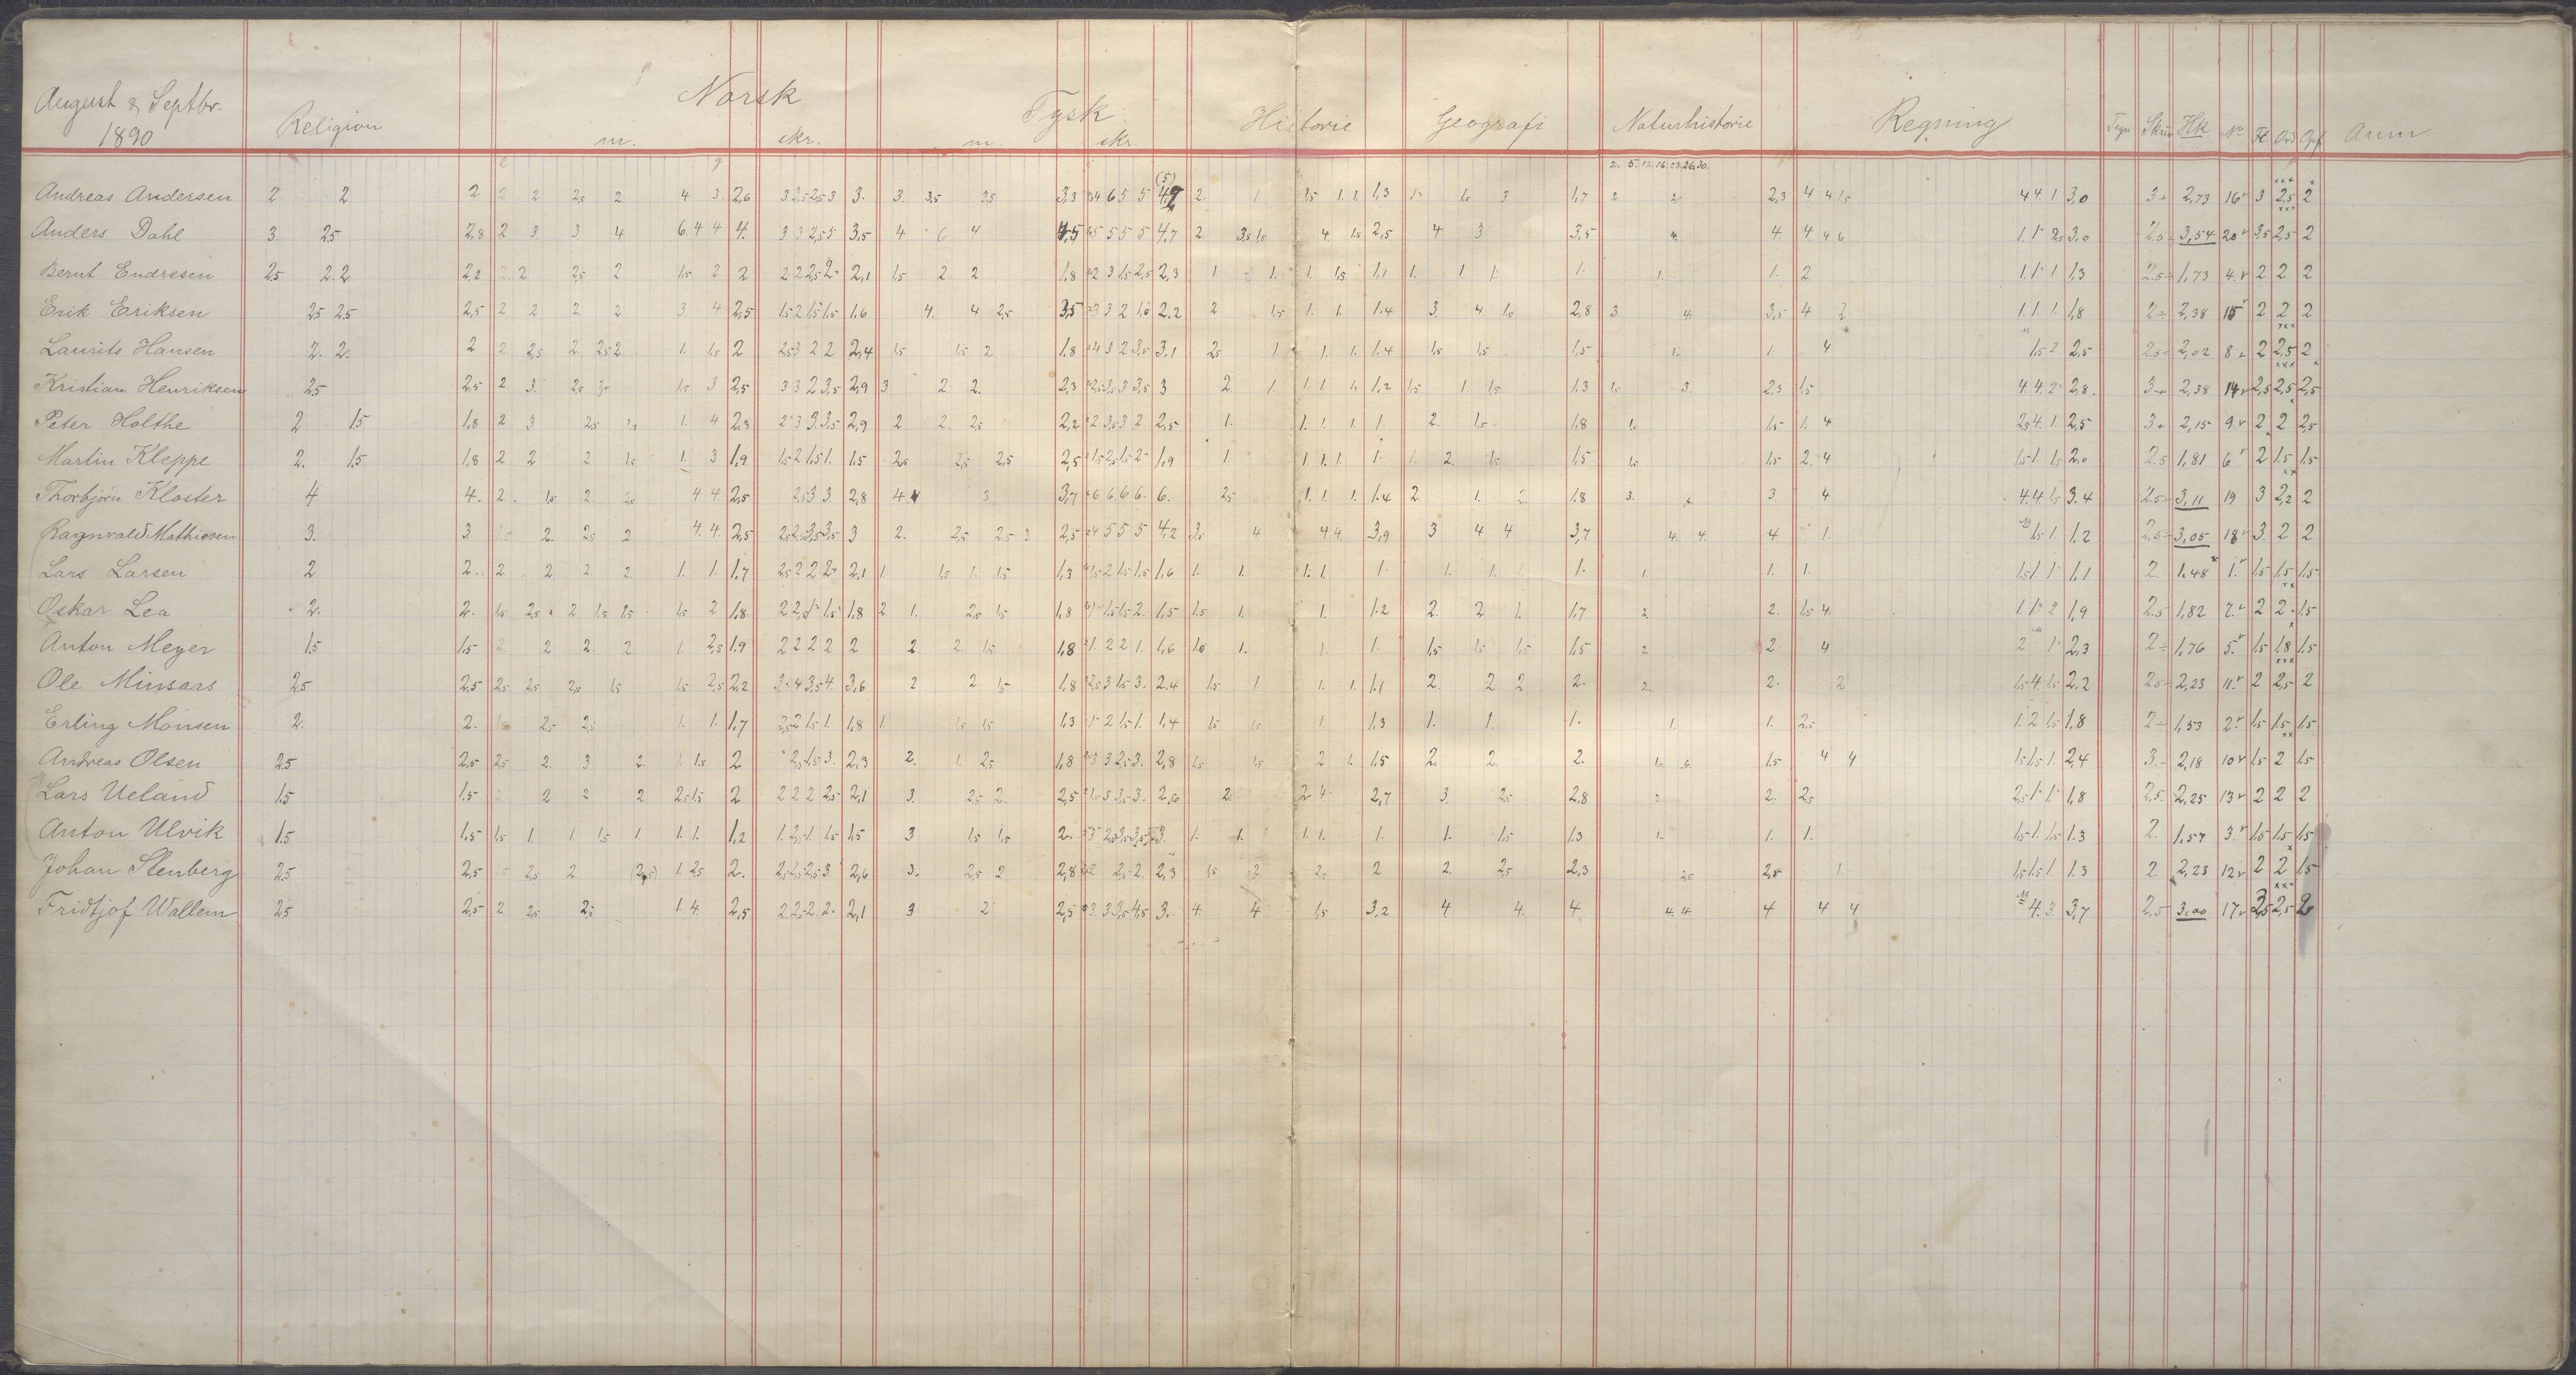 August & Septbr.
1890
Religion
Norsk
m.
skr.
Tysk
m
skr.
Historie
Geografi
Naturhistorie
Regning
Tegn
Skriv
Hk
No
Fl
Ord
Opf
Anm
Andreas Andersen 2 2 2 2 2 2,5 2 4 3 2,6 3 3,5 2,5 3 3. 3. 3,5 3,5 3,3 4 6 5 5 2. 1 1,5 1. 1. 1,3 1,7 2,3 4 4 1,5 4 4. 1 3,0 3 2,73 16 3 2,5 2
Anders Dahl 3. 2,5 2,8 2 3. 3. 4 6 4 4 4. 3 3 2,5 5 3,5 4 6 4 4,5 5 5 5 4,7 2. 3,5 1,5 4. 1,5 2,5 4 3 3,5 4. 4. 4 4 6 3,0 3,54 20 3,5 2,5 2
Bernt Endresen 2,5 2. 2 2,2 2 2 2,5 2 1,5 2 2 2,1 1,5 2 2 1,8 2 3 1,5 2,5 2,3 1. 1. 1. 1,5 1,1 1. 1. 1. 1. 1. 1. 2 1,3 2,5 1,73 4. 2 2 2
Erik Eriksen 2,5 2,5 2,5 2 2 2. 2 3. 4 2,5 1,5 2 1,5 1,5 1,6 4. 4 2,5 3,5 3 3 2 2,2 2 1,5 1. 1. 1.4 3. 4 1,5 2,8 3. 4. 3,5 4 2 1. 1. 1. 1,8 2 2,38 15 2 2 2
Laurits Hansen 2. 2. 2 2 2,5 2 2,5 2 1. 1,5 2 2,5 3 2 2 2,4 1,5 1,5 2 1,8 4 3 2 3,5 3,1 2,5 1. 1. 1. 1.4 1,5 1,5 1,5 1. 4 1,5 2 2,5 2,5 2,02 8 2 2,5 2
Kristian Henriksen 2,5 2,5 2. 3. 2,5 3 1,5 3 2,5 3 3 2 3,5 2,9 3 2 2. 2,3 3 3,5 3 2 1. 1. 1. 1,2 1,5 1 1,5 1.3 3. 2,3 1,5 4 4. 2 2,8. 3 2,38 14 2,5 2,5 2,5
Peter Holthe 2 1,5 1,8 2 3 2,5 1,5 1. 4 2,3 3 3. 3,5 2,9 2 2. 2,5 2,2 2 3,5 3 2. 2,5 1. 1. 1. 1. 1. 1. 2. 1,5 1,8 1,5 1. 4 2,5 4. 1. 2,5 3 2,15 9. 2 2 2,5
Martin Kleppe 2. 1,5 1,8 2 2 2. 1,5 1. 3 1,9 1,5 2 1,5 1. 1.5 2,5 2,5 2,5 2,5 1,9 1 1. 1. 1. 1. 1. 2. 1,5 1,5 1,5 1,5 2. 4 1,5 1. 1,5 2,0 2.5 1,81 6 2 1.5 1,5
Thorbjörn Kloster 4 4. 2. 1,5 2 2,5 4 4 2,5 2,5 3 3 2,8 4 4 3 3,7 6 6. 6 6. 6. 2,5 1. 1. 1. 1.4 2. 1. 2. 1.8 3. 3 4 4. 4 1,5 3.4 2.5 3,11 19 3 2,2 2
Ragnvald Mathiesen 3. 3 2. 2,5 2 4. 4. 2,5 3,5 3,5 3 2. 2,5 2,5 3 2,5 4 5 5 5 4,2 3,5 4 4 4. 3,9 3 4 4 3,7 4. 4. 4 1. 1,5 1. 1.2 2,5 3,05 18 3. 2 2
Lars Larsen 2 2. 2 2. 2. 2. 1. 1. 1,7 2,5 2 2 2 2,1 1. 1,5 1. 1,5 1,3 1,5 2 1,5 1,5 1,6 1. 1. 1. 1. 1. 1. 1. 1. 1. 1. 1. 1. 1,1 2. 1.48 1. 1,5 1,5 1,5
Oskar Lea 2. 2. 1,5 2,5 2 1,5 1,5 1,5 2 1,8 2 2,5 1 1,5 1,8 2 1. 2,5 1,5 1,8 1,5 1,5 2. 1,5 1,5 1. 1. 1.2 2. 2 1. 1,7 2. 2. 1,5 4. 1. 1 2 1,9 2.5 1,82 7. 2 2 1,5
Anton Meyer 1,5 1.5 2. 2 2. 2. 1. 2,5 1.9 2 2 2 2 2 2. 2. 1,5 1,8 1. 2 2 1. 1,6 1. 1. 1. 1. 1,5 1,5 1,5 1,5 2 2. 4 2 1 2,3 2 1,76 5. 1,5 1,8 1,5
Ole Minsaas 2,5 2,5 2,5 2,5 2,5 1,5 1,5 2,5 2,2 3 4 3,5 4. 3,6 2 2 1,5 1,8 2,5 3 1,5 3. 2.4 1,5 1 1. 1. 1,1 2. 2 2 2. 2. 2. 2 1,5 4 1,5 2,2 2,5 2,23 11. 2 2,5 2
Erling Monsen 2. 2. 2,5 2,5 1. 1. 1,7 2,5 2 1,5 1. 1,8 1. 1,5 1,5 1,3 2 1,5 1. 1,4 1,5 1,5 1. 1,3 1. 1. 1. 1. 1. 2,5 1. 2 1,5 1,8 2 1,53 2. 1,5 1,5 1,5
Andreas Olsen 2,5 2,5 2,5 2. 3 2. 1. 1,5 2 2,5 1,5 3. 2,3 2. 1. 2,5 1,8 3 3 2,5 3. 2,8 1,5 1,5 2 1. 1,5 2. 2. 2. 1,5 4 4 1,5 1,5 1. 2,4 3. 2,18 10 1,5 2 1,5
Lars Ueland 1,5 1.5 2 2 2 2 2,5 1,5 2 2 2 2 2,5 2,1 3. 2,5 2. 2,5 1,5 3 3,5 3. 2,6 2. 2 4. 2,7 3. 2,5 2,8 2 2. 2,5 2,5 1 1. 1,8 2,5. 2,25 13 2 2 2
Anton Ulvik 1,5 1,5 1,5 1. 1. 1,5 1 1. 1. 1,2 1. 2,5 1. 1,5 1.5 3 1,5 1,5 2. 3. 1. 1. 1. 1. 1. 1. 1,5 1.3 1. 1. 1. 1,5 1. 1,5 1.3 2. 1,57 3. 1,5 1,5 1,5
Johan Stenberg 2,5 2,5 1,5 2,5 2 (2,5) 1. 2,5 2. 2,5 2,5 2,5 3. 2,6 3. 2,5 2 2,8 2 2,5 2. 2,3 1,5 2. 2,5 2 2. 2,5 2,3 2,5 2,5 1. 1,5 1,5 1. 1.3 2 2,23 12 2 2 1,5
Fridtjof Wallem 2,5 2,5 2 2,5 2,5 1. 4. 2,5 2 2,5 2 2 2,1 3 2 2,5 3. 3 3,5 4,5 3. 4. 4 1,5 3,2 4. 4. 4 4. 4. 4 4 4 4. 3. 3,7 2,5 3,00 17 3,5 2,5 2